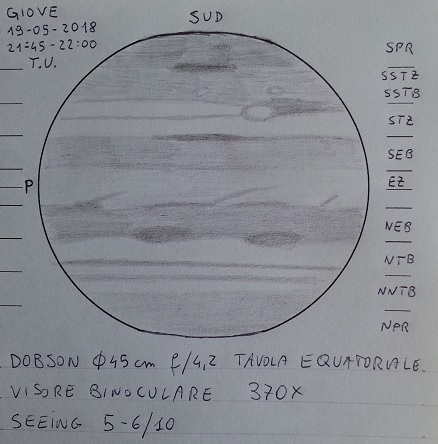 GIOVE
19-05-2018
21:45-22:00
T.U.
SUD
SPR
SSTZ
SSTB
STZ
SEB
P
EZ
NEB
NTB
NNTB
NPR
DOBSON Ø45cm f/4,2 TAVOLA EQUATORIALE.
VISORE BINOCULARE 370X
SEEING 5-6/10